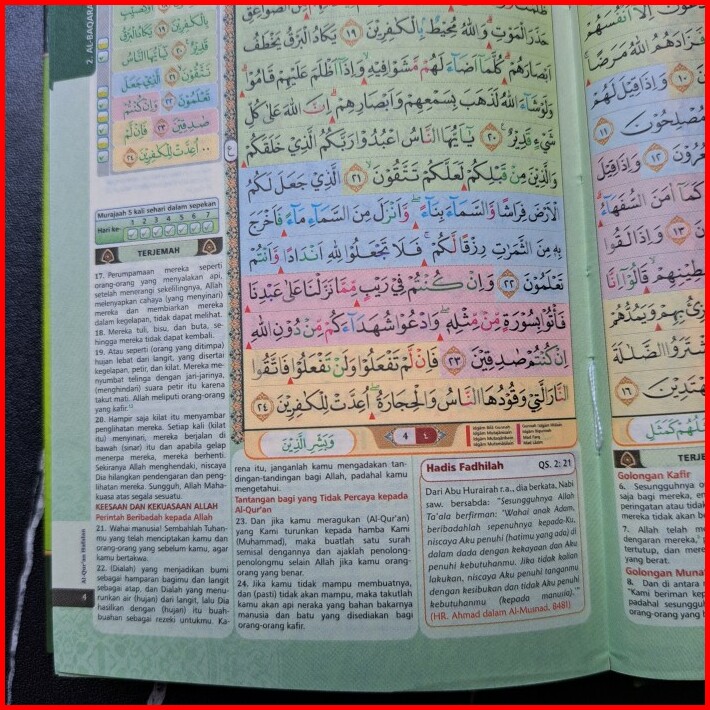 2. AL-BAQARA
بِالْكٰفِرِيْنَ ۝١٩ يَكَادُ الْبَرْقُ
قَدِيْرٌ ۝٢٠ يٰٓاَيُّهَا النَّاسُ
تَتَّقُوْنَ ۝٢١ الَّذِيْ جَعَلَ
تَعْلَمُوْنَ ۝٢٢ وَاِنْ كُنْتُمْ
صٰدِقِيْنَ ۝٢٣ فَاِنْ لَّمْ
اُعِدَّتْ لِلْكٰفِرِيْنَ ۝٢٤
حَذَرَ الْمَوْتِۗ وَاللّٰهُ مُحِيْطٌۢ بِالْكٰفِرِيْنَ ۝١٩ يَكَادُ الْبَرْقُ يَخْطَفُ
اَبْصَارَهُمْۗ كُلَّمَآ اَضَاۤءَ لَهُمْ مَّشَوْا فِيْهِۙ وَاِذَآ اَظْلَمَ عَلَيْهِمْ قَامُوْاۗ
وَلَوْ شَاۤءَ اللّٰهُ لَذَهَبَ بِسَمْعِهِمْ وَاَبْصَارِهِمْۗ اِنَّ اللّٰهَ عَلٰى كُلِّ
شَيْءٍ قَدِيْرٌ ۝٢٠ يٰٓاَيُّهَا النَّاسُ اعْبُدُوْا رَبَّكُمُ الَّذِيْ خَلَقَكُمْ
وَالَّذِيْنَ مِنْ قَبْلِكُمْ لَعَلَّكُمْ تَتَّقُوْنَۙ ۝٢١ الَّذِيْ جَعَلَ لَكُمُ
الْاَرْضَ فِرَاشًا وَّالسَّمَاۤءَ بِنَاۤءًۖ وَّاَنْزَلَ مِنَ السَّمَاۤءِ مَاۤءً فَاَخْرَجَ
بِهٖ مِنَ الثَّمَرٰتِ رِزْقًا لَّكُمْۚ فَلَا تَجْعَلُوْا لِلّٰهِ اَنْدَادًا وَّاَنْتُمْ
تَعْلَمُوْنَ ۝٢٢ وَاِنْ كُنْتُمْ فِيْ رَيْبٍ مِّمَّا نَزَّلْنَا عَلٰى عَبْدِنَا
فَأْتُوْا بِسُوْرَةٍ مِّنْ مِّثْلِهٖۖ وَادْعُوْا شُهَدَاۤءَكُمْ مِّنْ دُوْنِ اللّٰهِ
اِنْ كُنْتُمْ صٰدِقِيْنَ ۝٢٣ فَاِنْ لَّمْ تَفْعَلُوْا وَلَنْ تَفْعَلُوْا فَاتَّقُوا
النَّارَ الَّتِيْ وَقُوْدُهَا النَّاسُ وَالْحِجَارَةُۖ اُعِدَّتْ لِلْكٰفِرِيْنَ ۝٢٤
وَبَشِّرِ الَّذِيْنَ
4 ٤
Murajaah 5 kali sehari dalam sepekan
Hari ke- 1 2 3 4 5 6 7
TERJEMAH
17. Perumpamaan mereka seperti
orang-orang yang menyalakan api,
setelah menerangi sekelilingnya, Allah
melenyapkan cahaya (yang menyinari)
mereka dan membiarkan mereka
dalam kegelapan, tidak dapat melihat.
18. Mereka tuli, bisu, dan buta, se-
hingga mereka tidak dapat kembali.
19. Atau seperti (orang yang ditimpa)
hujan lebat dari langit, yang disertai
kegelapan, petir, dan kilat. Mereka me-
nyumbat telinga dengan jari-jarinya,
(menghindari) suara petir itu karena
takut mati. Allah meliputi orang-orang
yang kafir.
20. Hampir saja kilat itu menyambar
penglihatan mereka. Setiap kali (kilat
itu) menyinari, mereka berjalan di
bawah (sinar) itu dan apabila gelap
menerpa mereka, mereka berhenti.
Sekiranya Allah menghendaki, niscaya
Dia hilangkan pendengaran dan peng-
lihatan mereka. Sungguh, Allah Maha-
kuasa atas segala sesuatu.
KEESAAN DAN KEKUASAAN ALLAH
Perintah Beribadah kepada Allah
21. Wahai manusia! Sembahlah Tuhan-
mu yang telah menciptakan kamu dan
orang-orang yang sebelum kamu, agar
kamu bertakwa.
22. (Dialah) yang menjadikan bumi
sebagai hamparan bagimu dan langit
sebagai atap, dan Dialah yang menu-
runkan air (hujan) dari langit, lalu Dia
hasilkan dengan (hujan) itu buah-
buahan sebagai rezeki untukmu. Ka-
rena itu, janganlah kamu mengadakan tan-
dingan-tandingan bagi Allah, padahal kamu
mengetahui.
Tantangan bagi yang Tidak Percaya kepada
Al-Qur'an
23. Dan jika kamu meragukan (Al-Qur'an)
yang Kami turunkan kepada hamba Kami
(Muhammad), maka buatlah satu surah
semisal dengannya dan ajaklah penolong-
penolongmu selain Allah jika kamu orang-
orang yang benar.
24. Jika kamu tidak mampu membuatnya,
dan (pasti) tidak akan mampu, maka takutlah
kamu akan api neraka yang bahan bakarnya
manusia dan batu yang disediakan bagi
orang-orang kafir.
Hadis Fadhilah QS. 2: 21
Dari Abu Hurairah r.a., dia berkata, Nabi
saw. bersabda: "Sesungguhnya Allah
Ta'ala berfirman: 'Wahai anak Adam,
beribadahlah sepenuhnya kepada-Ku,
niscaya Aku penuhi (hatimu yang ada) di
dalam dada dengan kekayaan dan Aku
penuhi kebutuhanmu. Jika tidak kalian
lakukan, niscaya Aku penuhi tanganmu
dengan kesibukan dan tidak Aku penuhi
kebutuhanmu (kepada manusia).'"
(HR. Ahmad dalam Al-Musnad, 8481)
Al-Qur'an Hafalan
4
TERJE
Golongan Kafir
6. Sesungguhnya o
saja bagi mereka, en
peringatan atau tidak
mereka tidak akan b
7. Allah telah m
dengaran mereka,
tertutup, dan mere
yang berat.
Golongan Munaf
8. Dan di antara
"Kami beriman kep
padahal sesunggu
orang-orang yang b